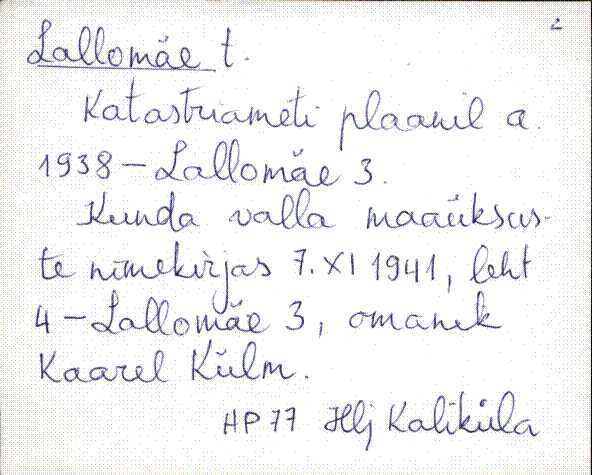 2
Lallomäe t.
Katastriameti plaanil a.
1938 – Lallomäe 3.
Kunda valla maaüksus-
te nimekirjas 7.XI 1941, leht
4 – Lallomäe 3, omanik
Kaarel Külm.
HP 77 Hlj Kaliküla